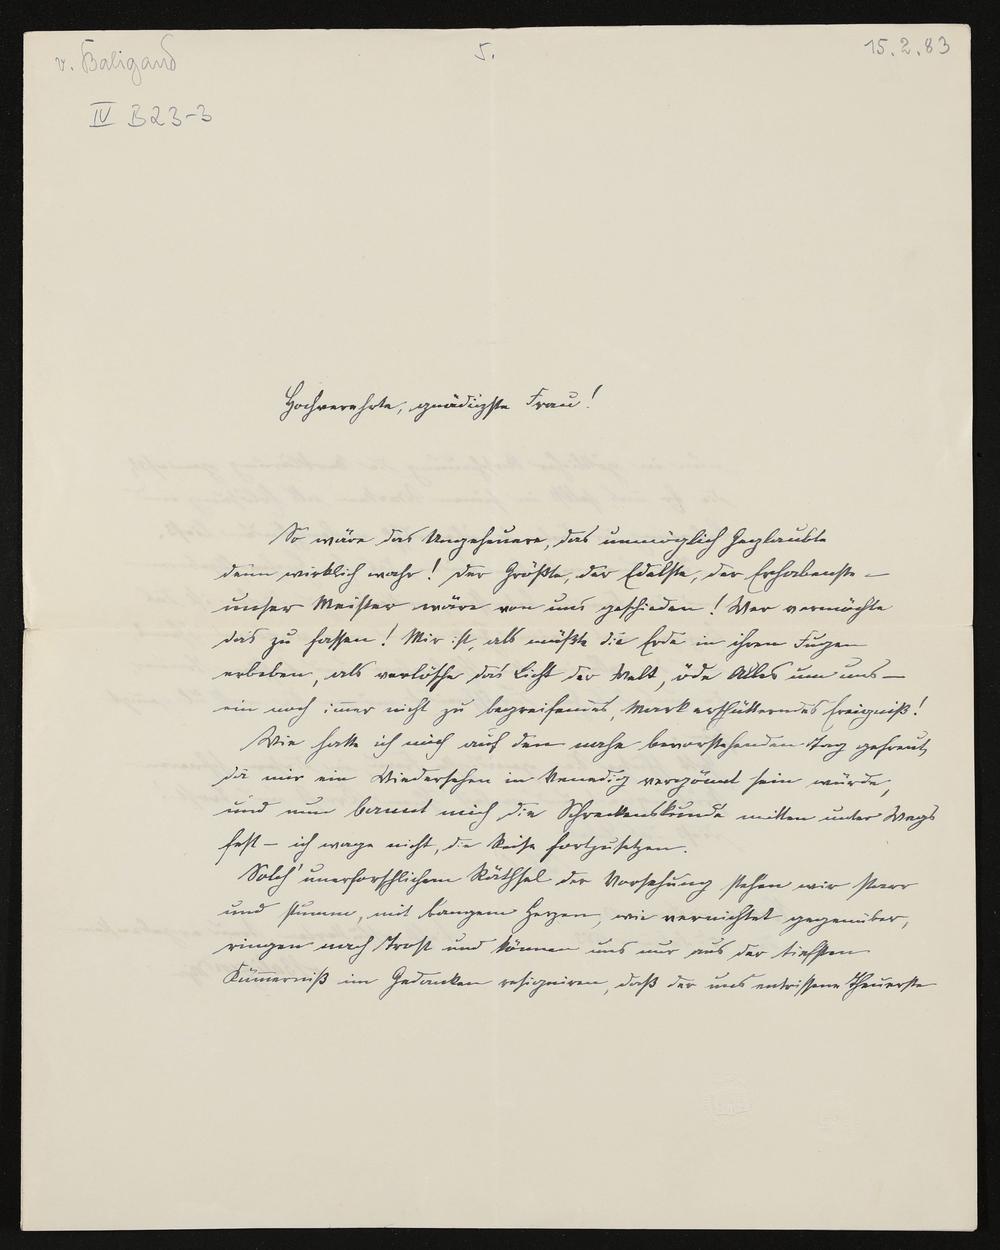 v. Baligand
5.
15.2.83
IV B23-3
Hochverehrte, gnädigste Frau!
So wäre das Ungeheuere, das unmöglich Geglaubte
denn wirklich wahr! Der Größte, der Edelste, der Erhabenste –
unser Meister wäre von uns geschieden! Wer vermöchte
das zu fassen! Mir ist, als müßte die Erde in ihren Fugen
erbeben, als verlösche das Licht der Welt, öde Alles um uns –
ein noch immer nicht zu begreifendes, Mark erschütterndes Ereigniß!
Wie hatte ich mich auf den nahe bevorstehenden Tag gefreut,
da mir ein Wiedersehen in Venedig vergönnt sein würde,
und nun bannt mich die Schreckenskunde mitten unter Wegs
fest – ich wage nicht, die Reise fortzusetzen.
Solch' unerforschlichem Räthsel der Vorsehung stehen wir starr
und stumm, mit bangem Herzen, wie vernichtet gegenüber,
ringen nach Trost und können uns nur aus der tiefsten
Kümmerniß im Gedanken resigniren, daß der uns entrissene Theuerste